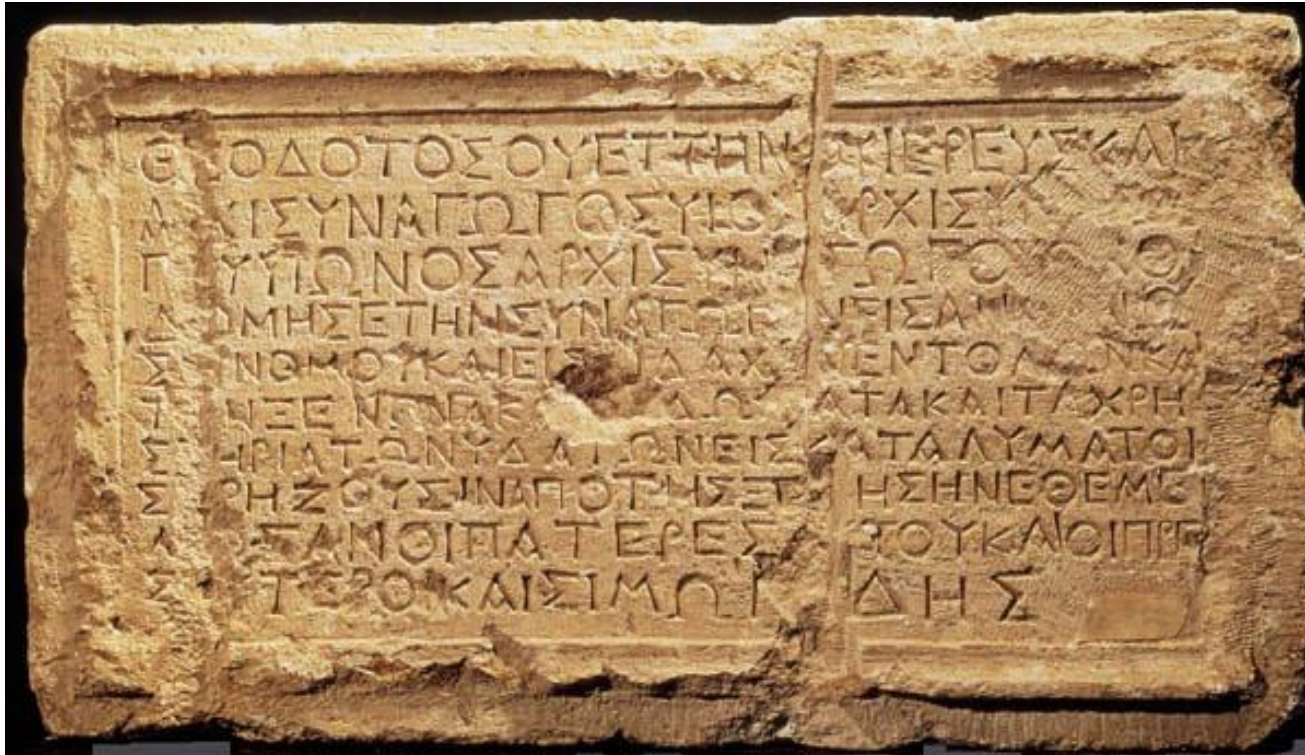 ΘΟΔΟΤΟΣΟΥΕΤΤΗΝΟΥΙΕΡΕΥΣΚΑΙ
ΑΧΙΣΥΝΑΓΩΓΟΣΥΙΟΣΑΡΧΙΣΥ
ΓΥΥΙΩΝΟΣΑΡΧΙΣΥΝΓΩΓΟΥΩΚΟ
ΔΟΜΗΣΕΤΗΝΣΥΝΑΓΩΓΝΕΙΣΑΝΩ
ΣΝΟΜΟΥΚΑΙΕΙΣΙΔΑΧΝΕΝΤΟΛΩΝΚΑΙ
ΤΝΞΕΝΩΝΑΚΑΔΩΜΑΤΑΚΑΙΤΑΧΡΗ
ΣΗΡΙΑΤΩΝΥΔΑΤΩΝΕΙΣΚΑΤΑΛΥΜΑΤΟΙ
ΣΡΗΖΟΥΣΙΝΑΠΟΤΗΣΞΕΗΣΗΝΕΘΕΜΕ
ΛΣΑΝΟΙΠΑΤΕΡΕΣΥΤΟΥΚΑΙΟΙΠΡΕ
ΣΤΕΡΟΙΚΑΙΣΙΜΩΝΔΗΣ